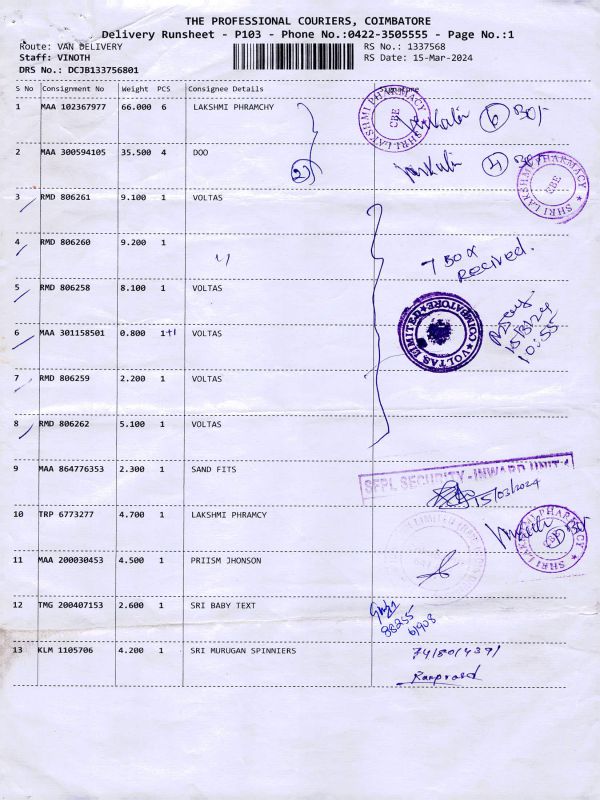 THE PROFESSIONAL COURIERS, COIMBATORE
Delivery Runsheet - P103 - Phone No.:0422-3505555 - Page No.:1
Route: VAN DELIVERY RS No.: 1337568
Staff: VINOTH RS Date: 15-Mar-2024
DRS No.: DCJB133756801
S No Consignment No Weight PCS Consignee Details
1 MAA 102367977 66.000 6 LAKSHMI PHRAMCHY 6
SHRI LAKSHMI PHARMACY CBE
2 MAA 300594105 35.500 4 DOO 2 4
SHRI LAKSHMI PHARMACY CBE
3 RMD 806261 9.100 1 VOLTAS
4 RMD 806260 9.200 1 VOLTAS
7 Box
Recived.
5 RMD 806258 8.100 1 VOLTAS
VOLTAS LIMITED COIMBATORE
15/3/24
10:55
6 MAA 301158501 0.800 1+1 VOLTAS
7 RMD 806259 2.200 1 VOLTAS
8 RMD 806262 5.100 1 VOLTAS
9 MAA 864776353 2.300 1 SAND FITS
SFPL SECURITY - INWARD UNIT-
15/03/2024
10 TRP 6773277 4.700 1 LAKSHMI PHRAMCY
SHRI LAKSHMI PHARMACY
11 MAA 200030453 4.500 1 PRIISM JHONSON
12 TMG 200407153 2.600 1 SRI BABY TEXT
88255
61908
13 KLM 1105706 4.200 1 SRI MURUGAN SPINNIERS
Ramprasad